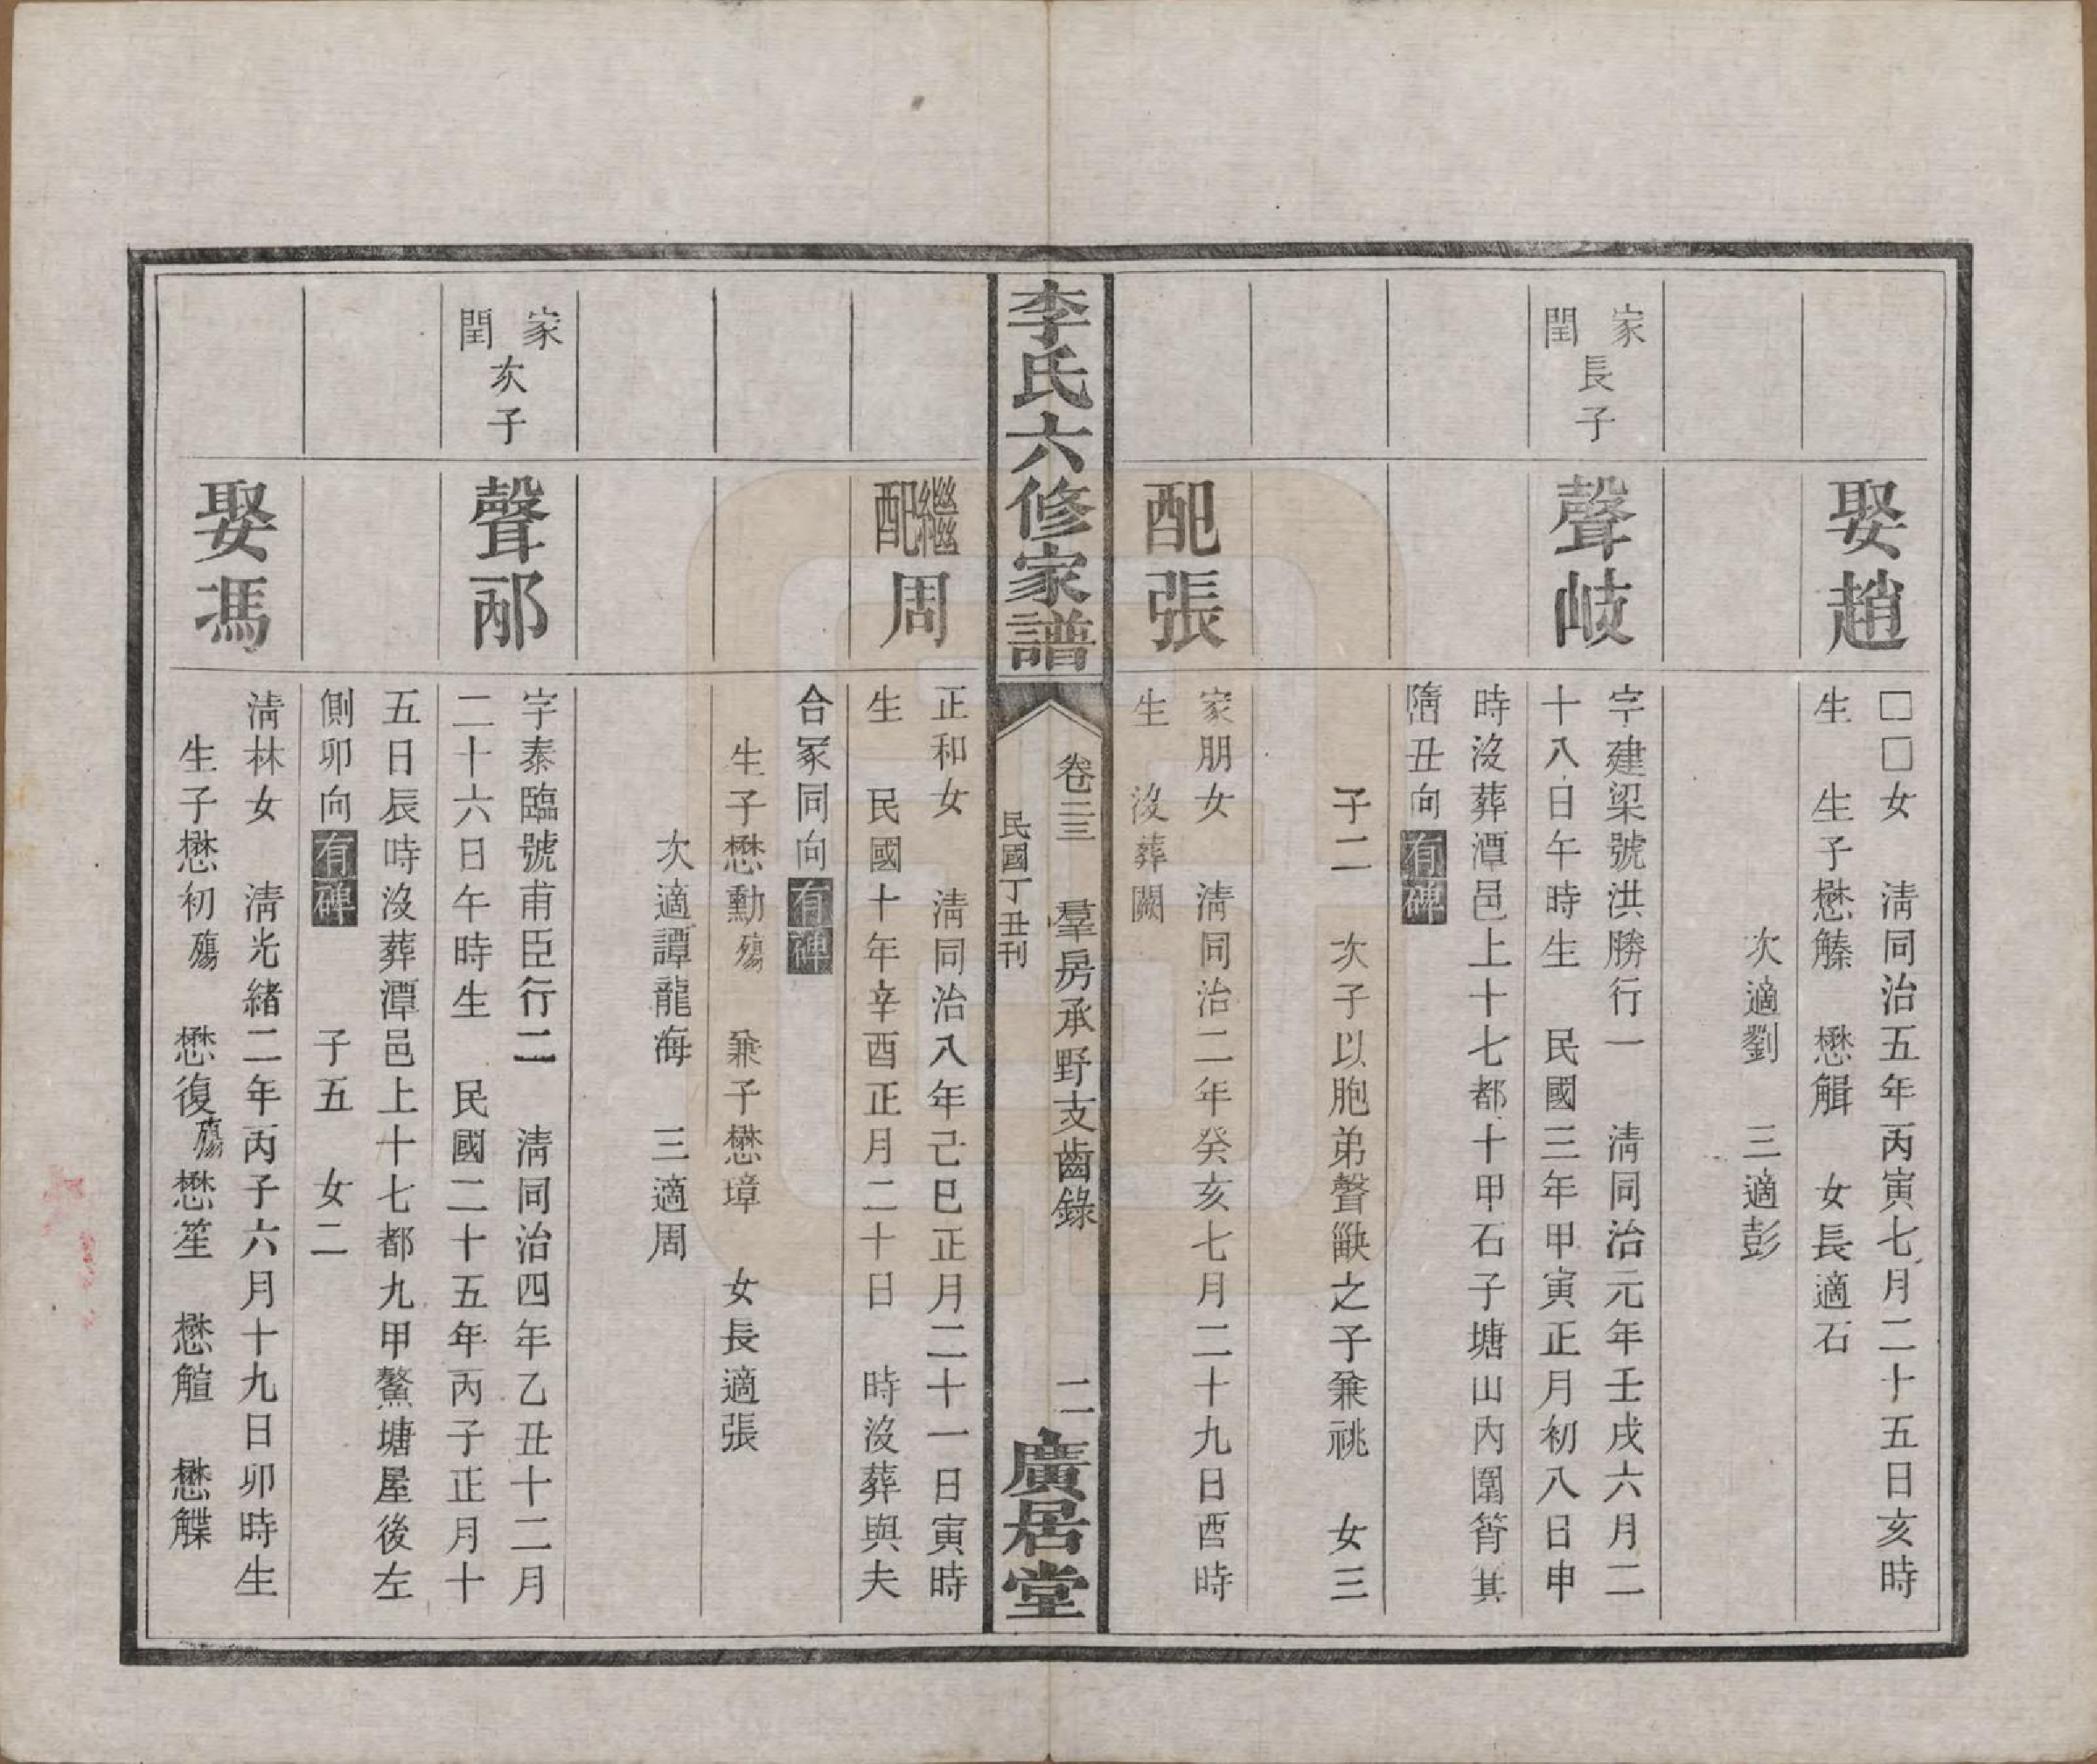 娶趙
□□女　清同治五年丙寅七月二十五日亥時
生　生子懋觹　懋觮　女長適石
次適劉　三適彭
家閏長子
聲岐
字建梁號洪勝行一　清同治元年壬戌六月二
十八日午時生　民國三年甲寅正月初八日申
時沒葬潭邑上十七都十甲石子塘山內圍筲萁
隋丑向有碑
子二　次子以胞弟聲之子兼祧　女三
配張
家朋女　清同治二年癸亥七月二十九日酉時
生　沒葬闕
李氏六修家譜
卷三三　羣房承野支齒錄　二
民國丁丑刊
廣居堂
繼配周
正和女　清同治八年己巳正月二十一日寅時
生　民國十年辛酉正月二十日　時沒葬與夫
合冢同向有碑
生子懋勳殤　兼子懋璋　女長適張
次適譚龍海　三適周
家閏次子
聲邴
字泰臨號甫臣行二　清同治四年乙丑十二月
二十六日午時生　民國二十五年丙子正月十
五日辰時沒葬潭邑上十七都九甲鰲塘屋後左
側卯向有碑　子五　女二
娶馮
清林女　清光緒二年丙子六月十九日卯時生
生子懋初殤　懋復殤　懋笙　懋觛　懋艓